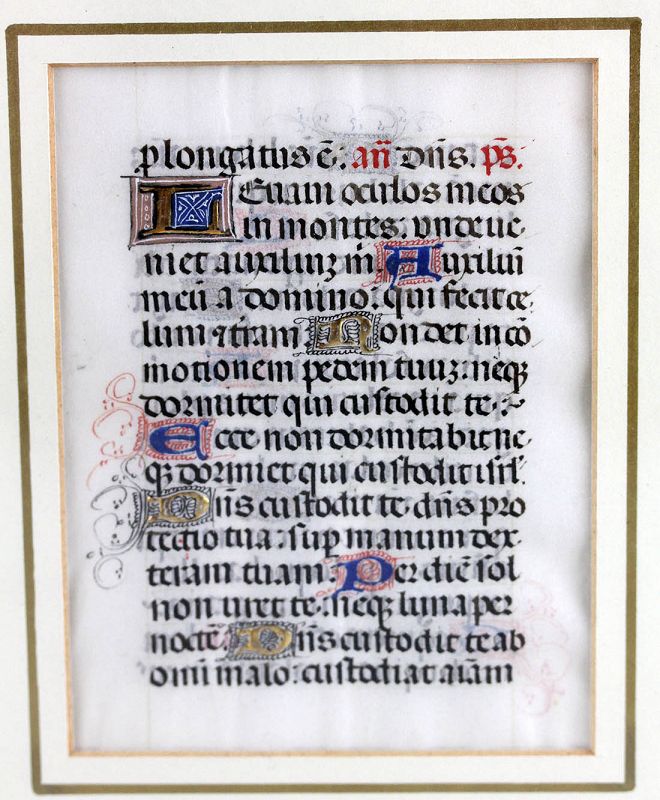 plongatus ē: añ Dñs. p̄s.
LEuam oculos meos
in montes: vnde ue-
niet auxiliuʒ m̄. Auxiliū
meū a domino: qui fecit ce-
lum ⁊ t̄ram Non det in cō
motionem pedem tuuʒ: neqꝫ
dormitet qui custodit te:~
Ecce non dormitabit ne-
qꝫ dormiet qui custodit isr̄l.
Dñs custodit te dñs pro
tectio tua: sup̄ manum dex-
teram tuam: Per diē sol
non uret te: neqꝫ luna per
noctē. Dñs custodit te ab
omī malo: custodiat aīam